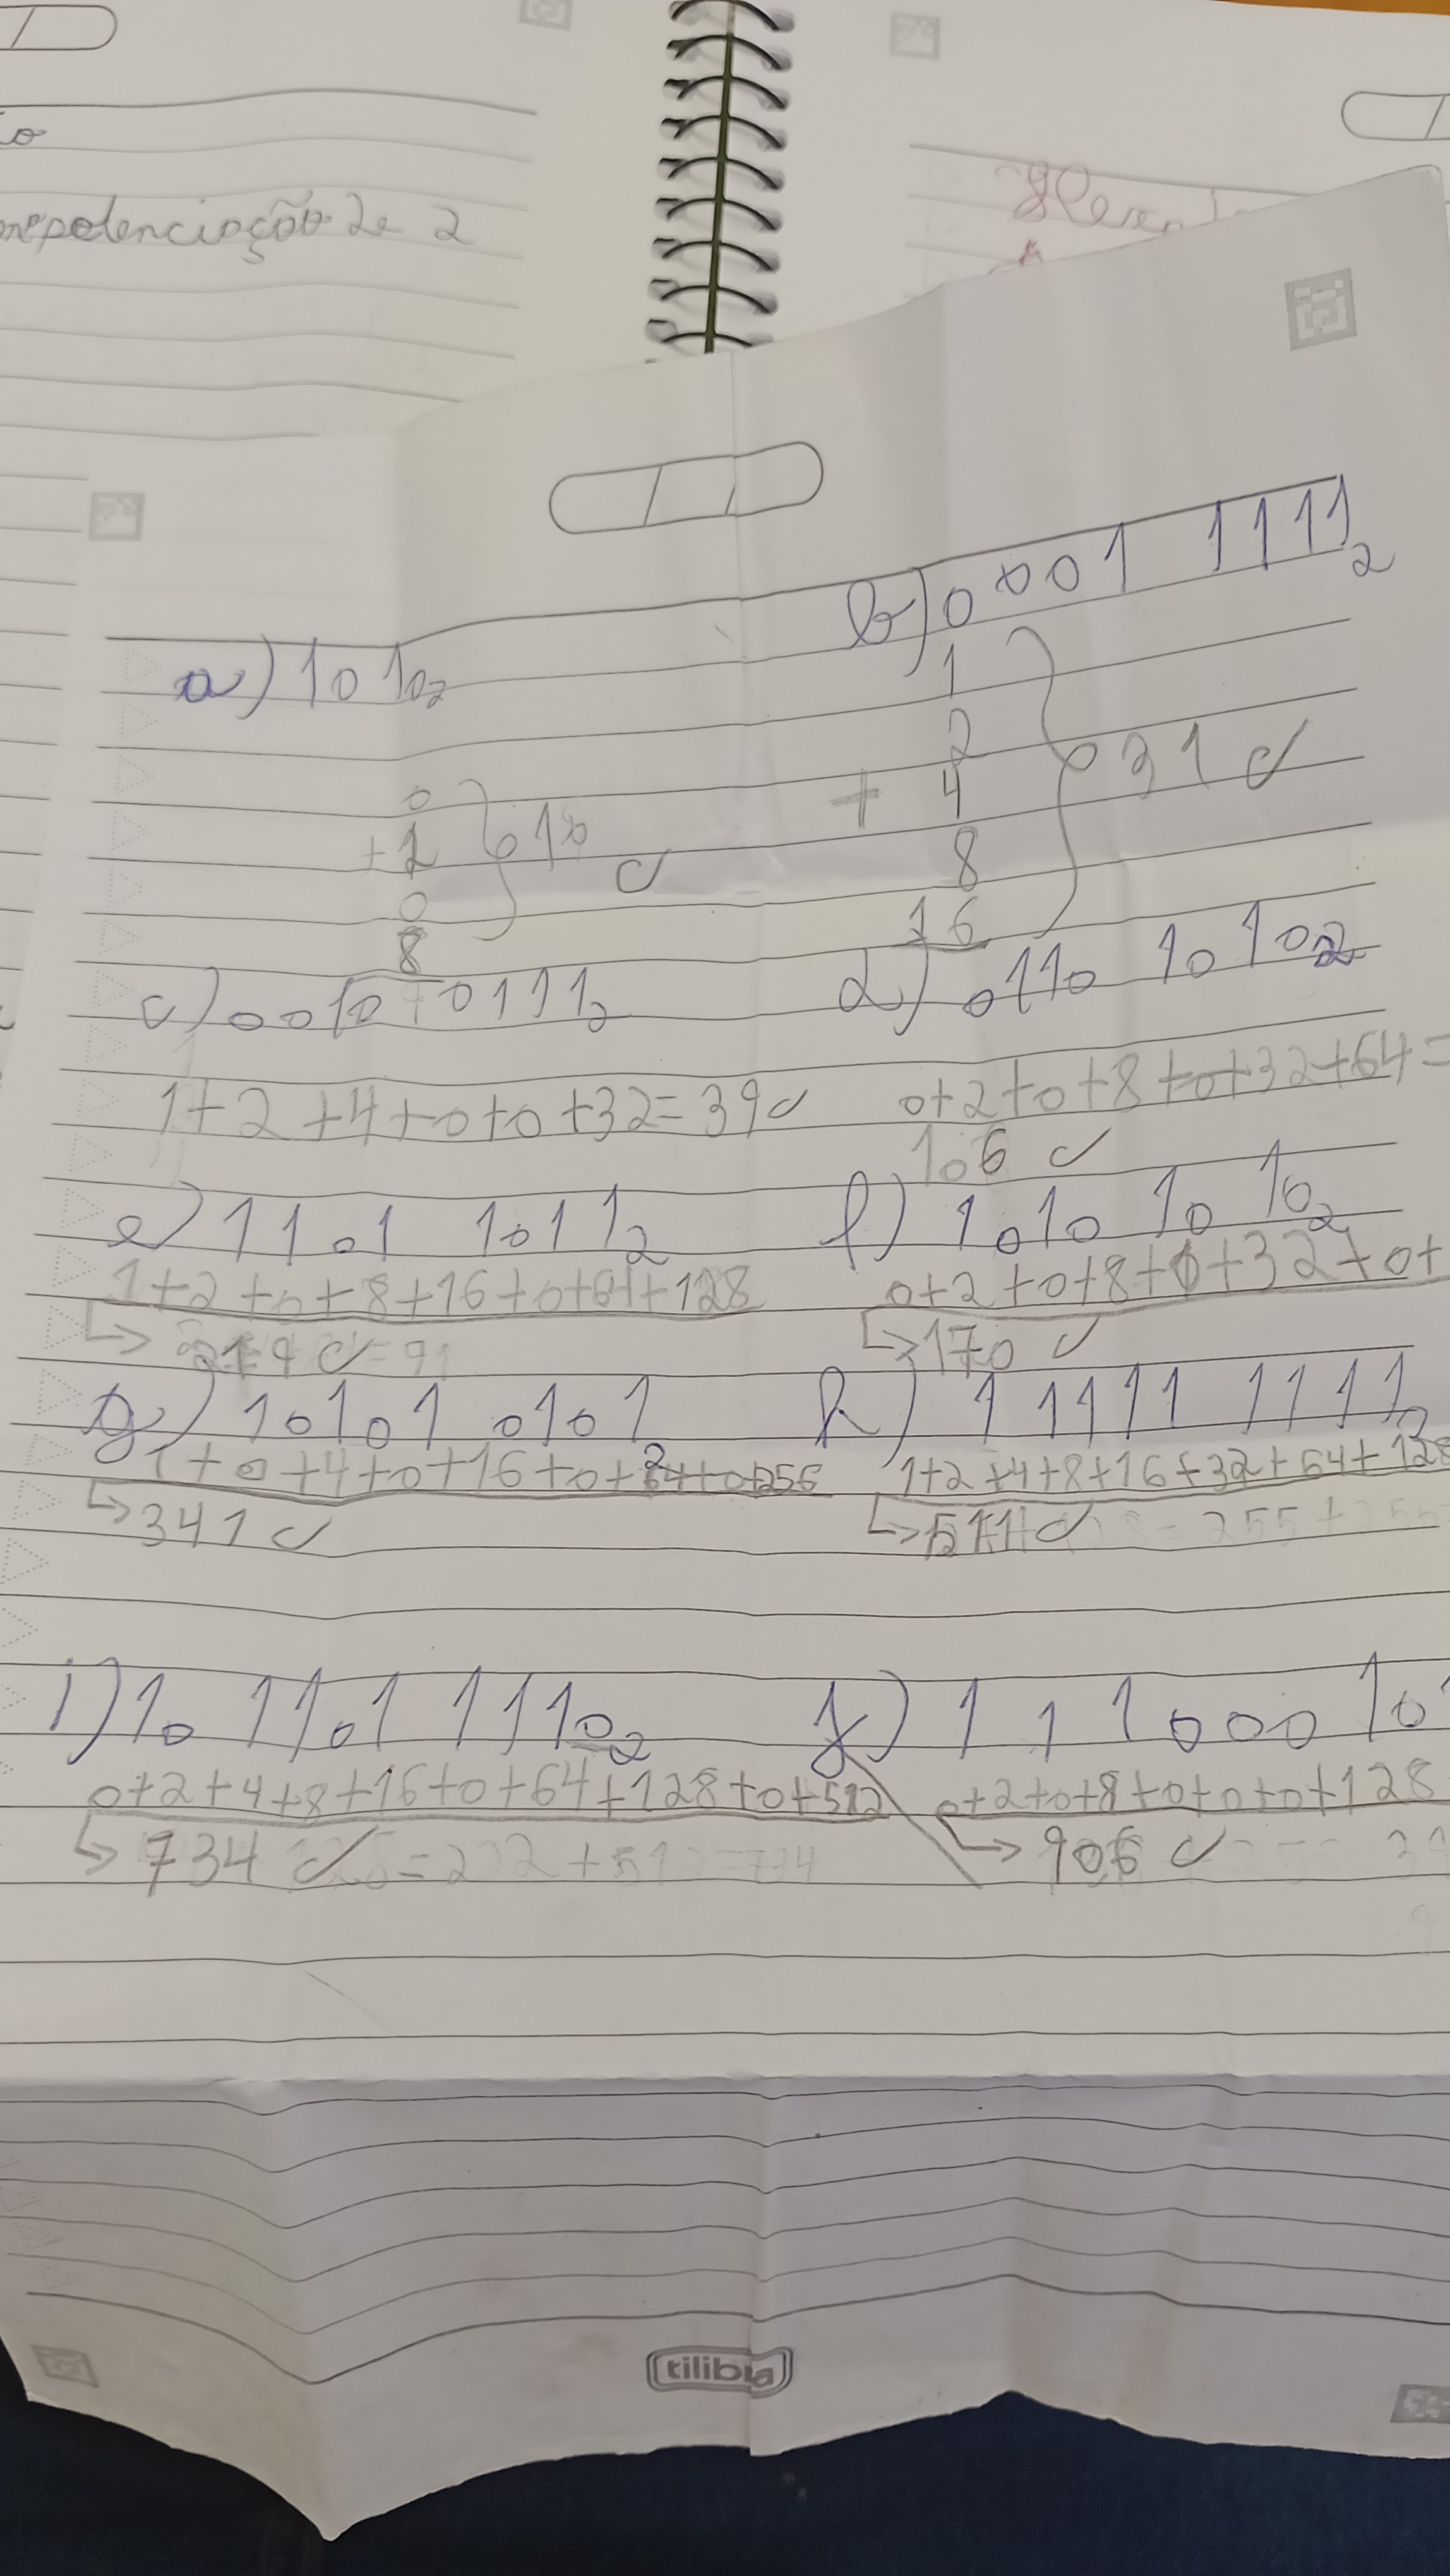 potenciação de 2
a) 1010₂
0
+ 2
0
8
10
b) 0001 1111₂
1
2
+ 4
8
16
31
c) 0010 0111₂
1+2+4+0+0+32=39
d) 0110 1010₂
0+2+0+8+0+32+64=
106
e) 1101 1011₂
1+2+0+8+16+0+64+128
f) 1010 1010₂
0+2+0+8+0+32+0+
170
g) 10101 0101₂
1+0+4+0+16+0+64+0+256
341
h) 1 1111 1111₂
1+2+4+8+16+32+64+128
511
i) 10 1101 1110₂
0+2+4+8+16+0+64+128+0+512
734
j) 11 1000 101
0+2+0+8+0+0+0+128
906
tilibra